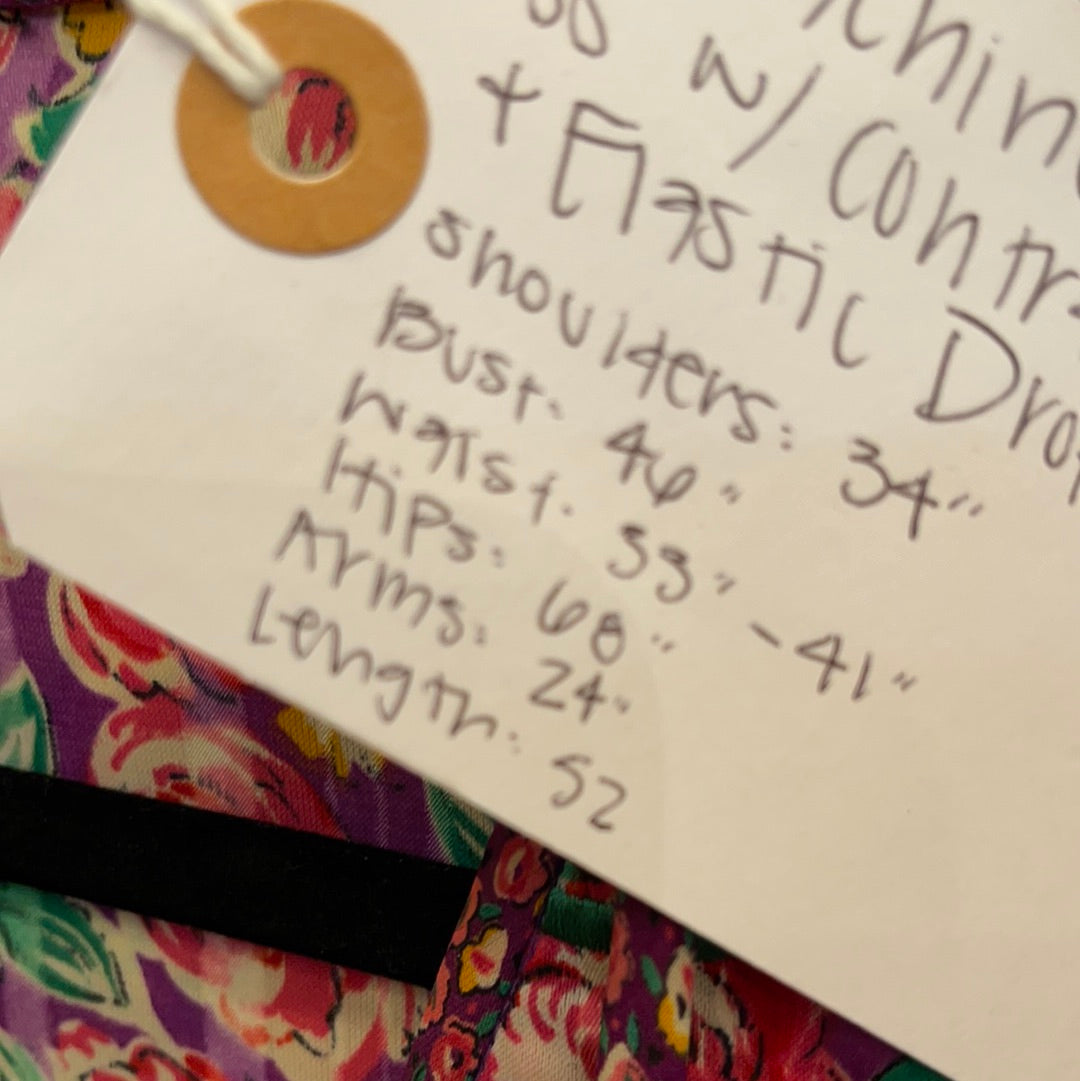 w/ Contr
+ Elastic Dro
Shoulders: 34"
Bust: 46"
Waist: 33" - 41"
Hips: 60"
Arms: 24"
Length: 52